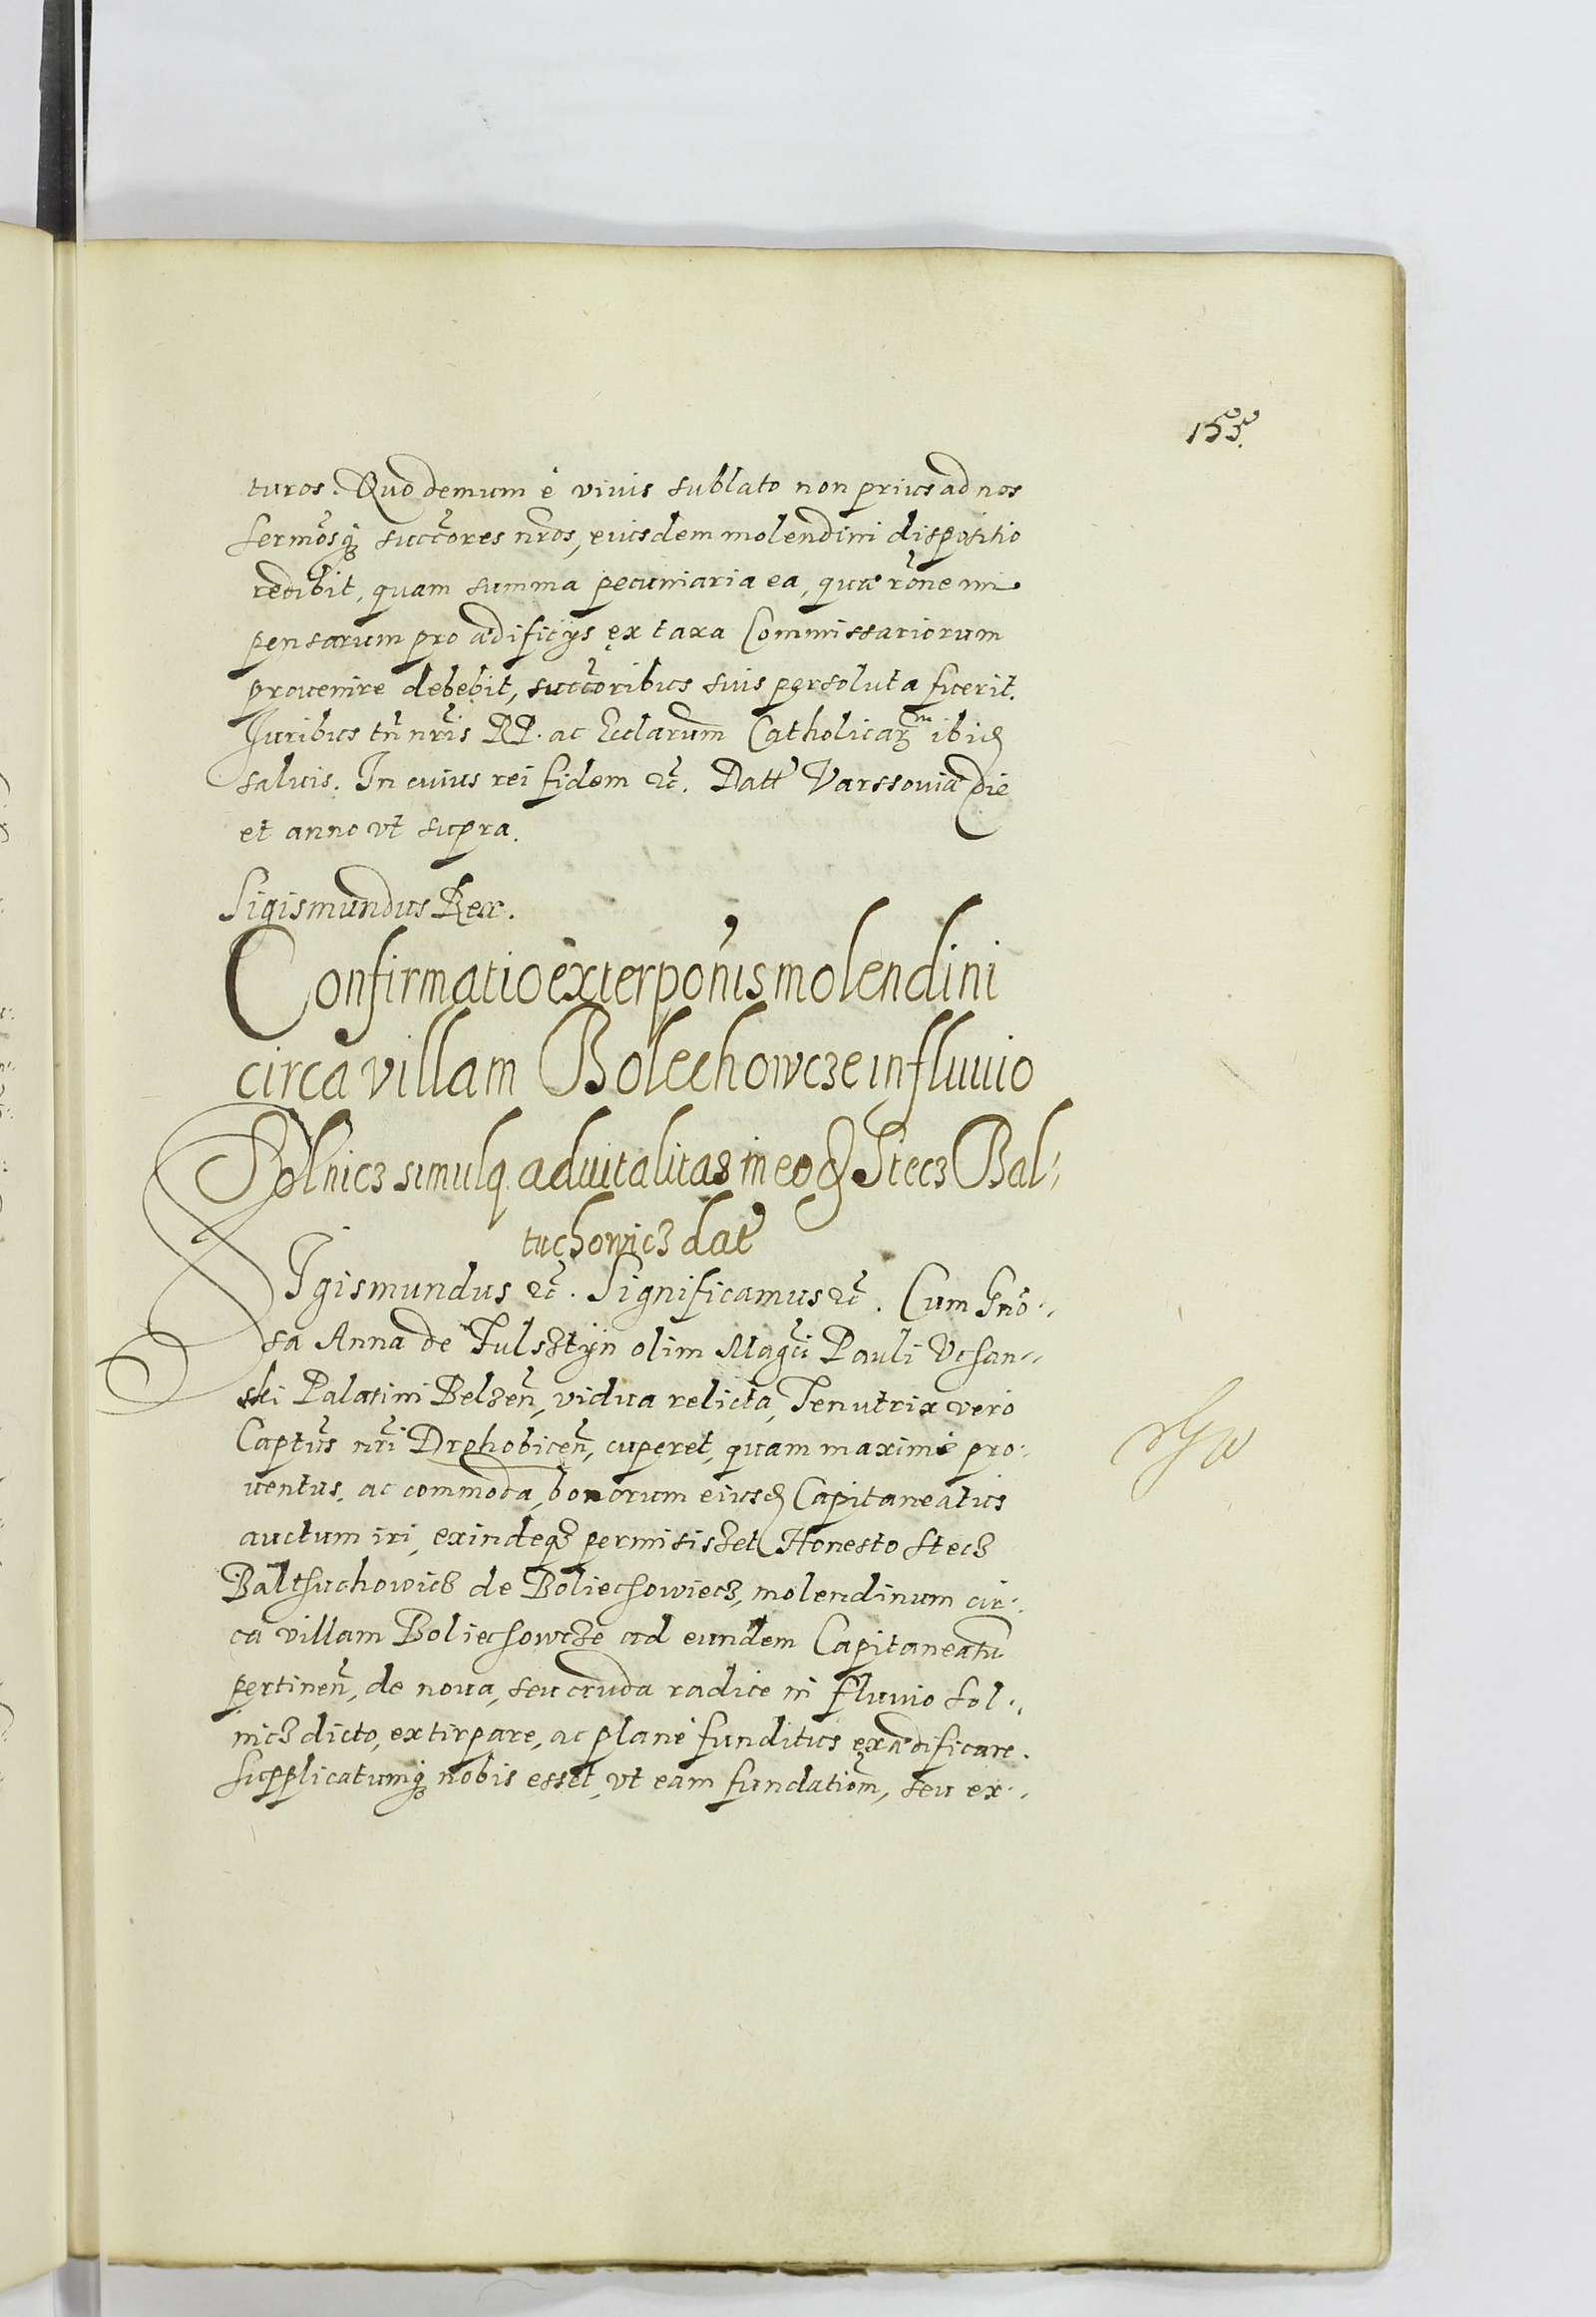 155.
turos. Quo demum è viuis sublato non prius ad nos
sermosq; succores nros, eiusdem molendini dispositio
redibit, quam summa pecuniaria ea, quæ rone im
pensarum pro ædificijs ex taxa Commissariorum
prouenire debebit, succoribus suis persoluta fuerit.
Juribus tn nris RP. ac Ecclarum Catholicar ibid
saluis. In cuius rei fidem etc. Datt Varssouiæ die
et anno vt supra.
Sigismundus Rex.
Confirmatio exterponis molendini
circa villam Bolechowcze in fluuio
Solnicz simulq aduitalitas in eod Stecz Bal
tuchowicz dat
Sigismundus etc. Significamus etc. Cum Gno
sa Anna de Fulsztyn olim Magci Pauli Vchan
ski Palatini Belzen, vidua relicta, Tenutrix vero
Captus nri Drohobicen, cuperet, quam maximè pro
uentus, ac commoda, bonorum eiusd Capitaneatus
auctum iri, exindeq permisiszet Honesto Stecz
Balthuchowicz de Boliechowiecz, molendinum cir
ca villam Boliechowcze ad eundem Capitaneatu
pertinen, de noua, seu cruda radice in fluuio Sol
nicz dicto, extirpare, ac planè funditus exædificare.
Supplicatumq; nobis esset, vt eam fundationm, seu ex